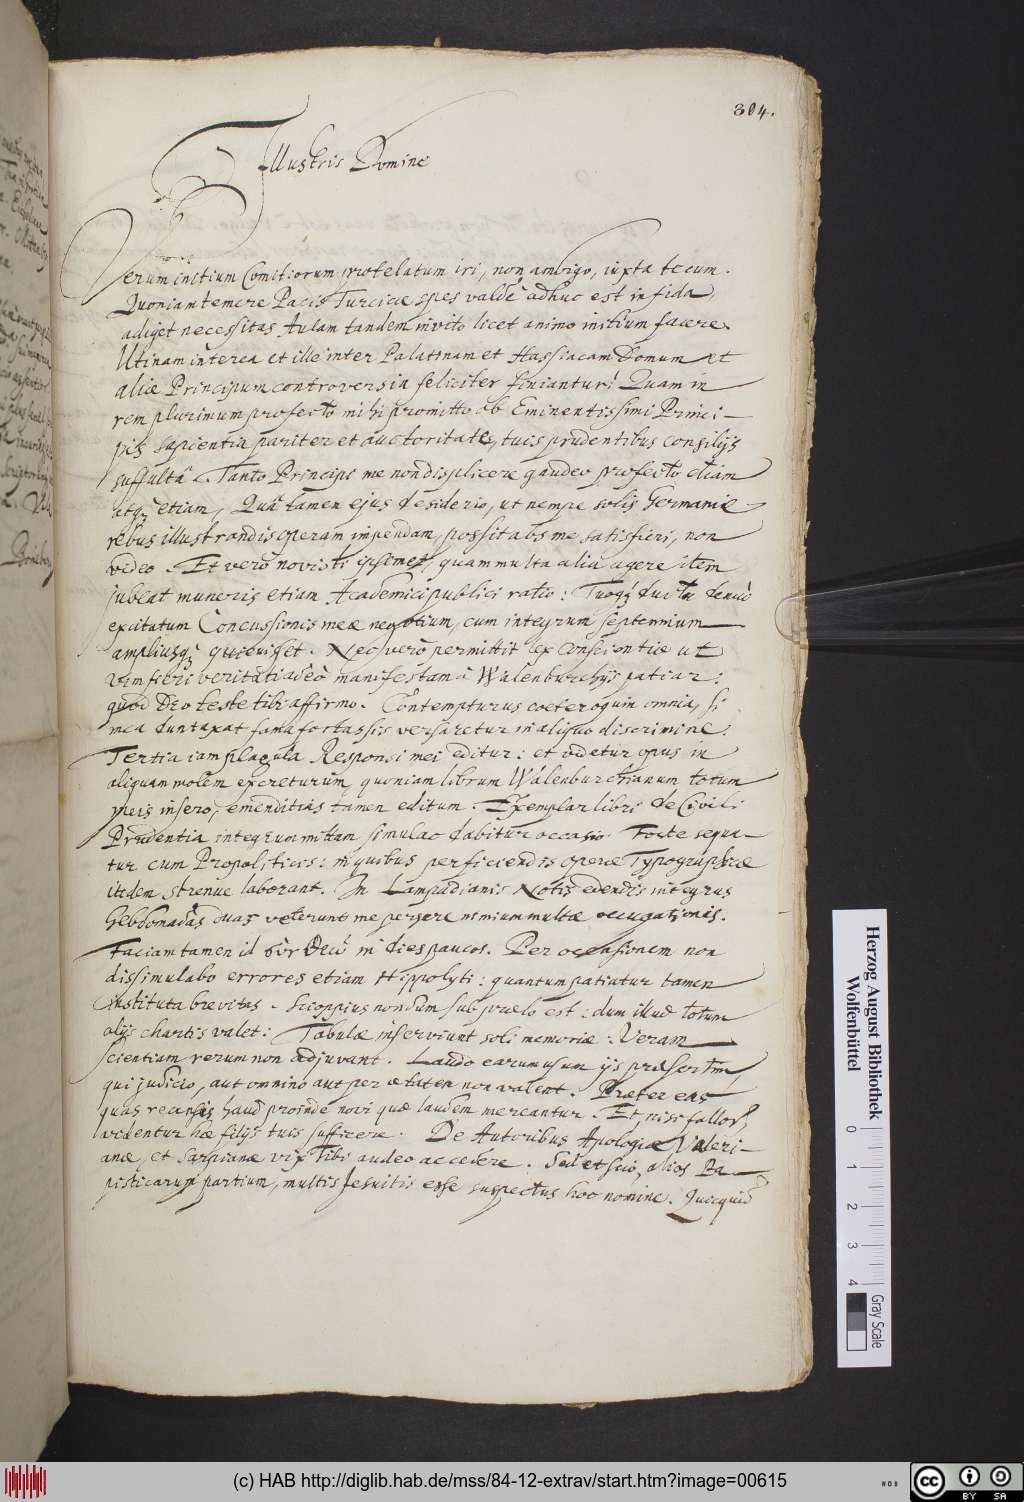 304.
Illustris Domine
Verum initium Comitiorum protelatum iri, non ambigo, iuxta tecum.
Quoniam temere Pacis Turcicae spes valdè adhuc est infida,
adiget necessitas Aulam tandem invito licet animo initium facere.
Utinam interea et ille inter Palatinam et Hassiacam Domum et
aliae Principum controversia feliciter finiantur! Quam in
rem plurimum profectò mihi promitto ob Eminentissimi Princi-
pis sapientia pariter et auctoritate, tuis prudentibus consilijs
suffultâ. Tanto Principi me non displicere gaudeo profectò etiam
atq; etiam, Quâ tamen ejus desiderio, ut nempe solis Germaniae
rebus illustrandis operam impendam, possit abs me satisfieri, non
video. Et verò novisti ipsemet, quam multa alia agere item
jubeat muneris etiam Academici publici ratio: Tuoq; ductu denuò
excitatum Concussionis meae negotium, cum integrum septennium
ampliusq; quievisset. Nec verò permittit lex conscientiae ut
vim fieri veritati adeò manifestam à Walenburchijs patiar:
quod Deo teste tibi affirmo. Contempturus coeteroquin omnia, si
mea duntaxat fama fortassis versaretur in aliquo discrimine.
Tertia iam plagula Responsi mei editur: et videtur opus in
aliquam molem excreturum, quoniam librum Walenburchianum totum
meis insero, emendatius tamen editum. Exemplar libri de Civili
Prudentia integrum mittam simulac dabitur occasio. Forte sequa-
tur cum Propoliticis: in quibus perficiendis operae Typographicae
itidem strenue laborant. In Lampadianis Notis edendis integras
hebdomadas duas veterunt me pergere nimium multae occupationes.
Faciam tamen id σὺν Θεῶ in dies paucos. Per occasionem non
dissimulabo errores etiam Hippolyti: quantum patiatur tamen
instituta brevitas. Scioppius nondum sub praelo est: dum illud totum
alijs chartis valet: Tabulae inserviunt soli memoriae: Veram
scientiam rerum non adjuvant. Laudo earum usum ijs praesertim
qui judicio, aut omnino aut per aetatem non valent. Praeter eas
quas recensis haud proinde novi quae laudem mereantur. Et nisi fallor,
videntur hae filijs tuis sufficere. De Autoribus Apologiae Valeri-
anae, et Sarpianae vix Tibi audeo accedere. Sed et scio, alios Pa-
pisticarum partium, multis Jesuitis esse suspectus hoc nomine. Quicquid
Herzog August Bibliothek
Wolfenbüttel
0 1 2 3 4
Gray Scale
(c) HAB http://diglib.hab.de/mss/84-12-extrav/start.htm?image=00615
cc BY SA